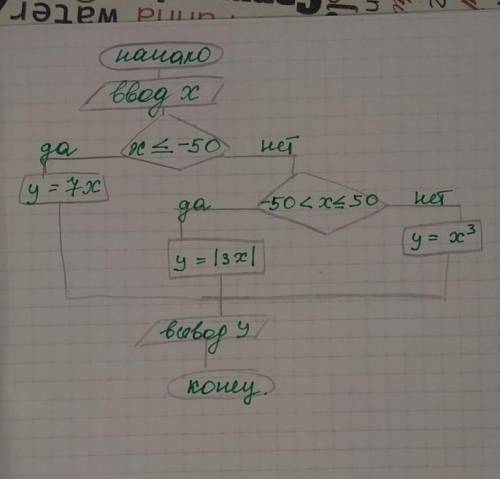 начало
ввод x
да x ≤ -50 нет
y = 7x
да -50 < x ≤ 50 нет
y = |3x|
y = x³
вывод y
конец.